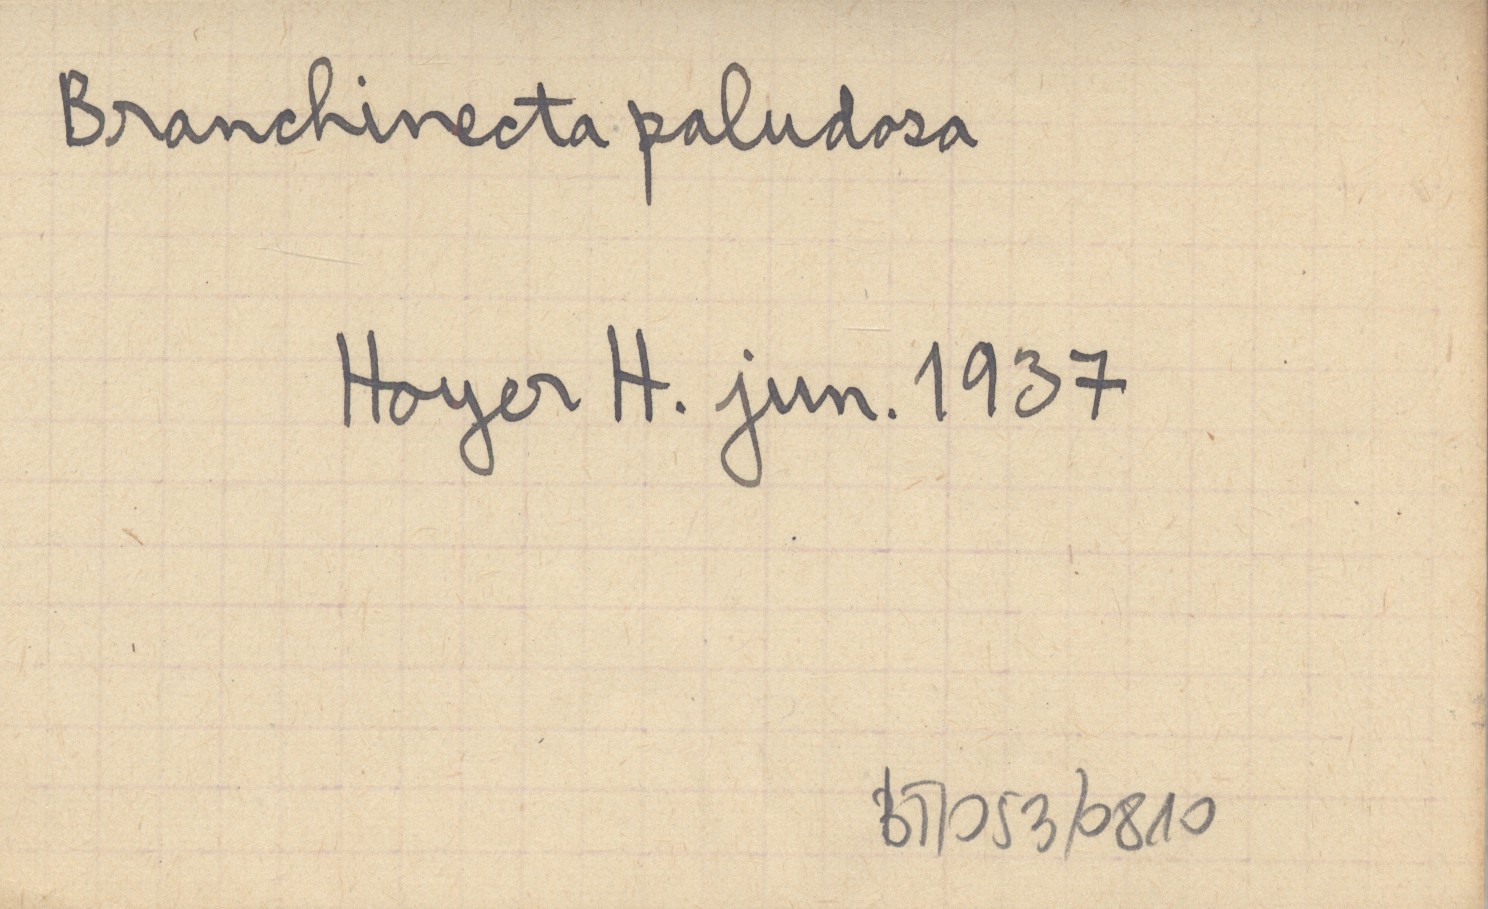 Branchinecta paludosa
Hoyer H. jun. 1937
BT/053/0810